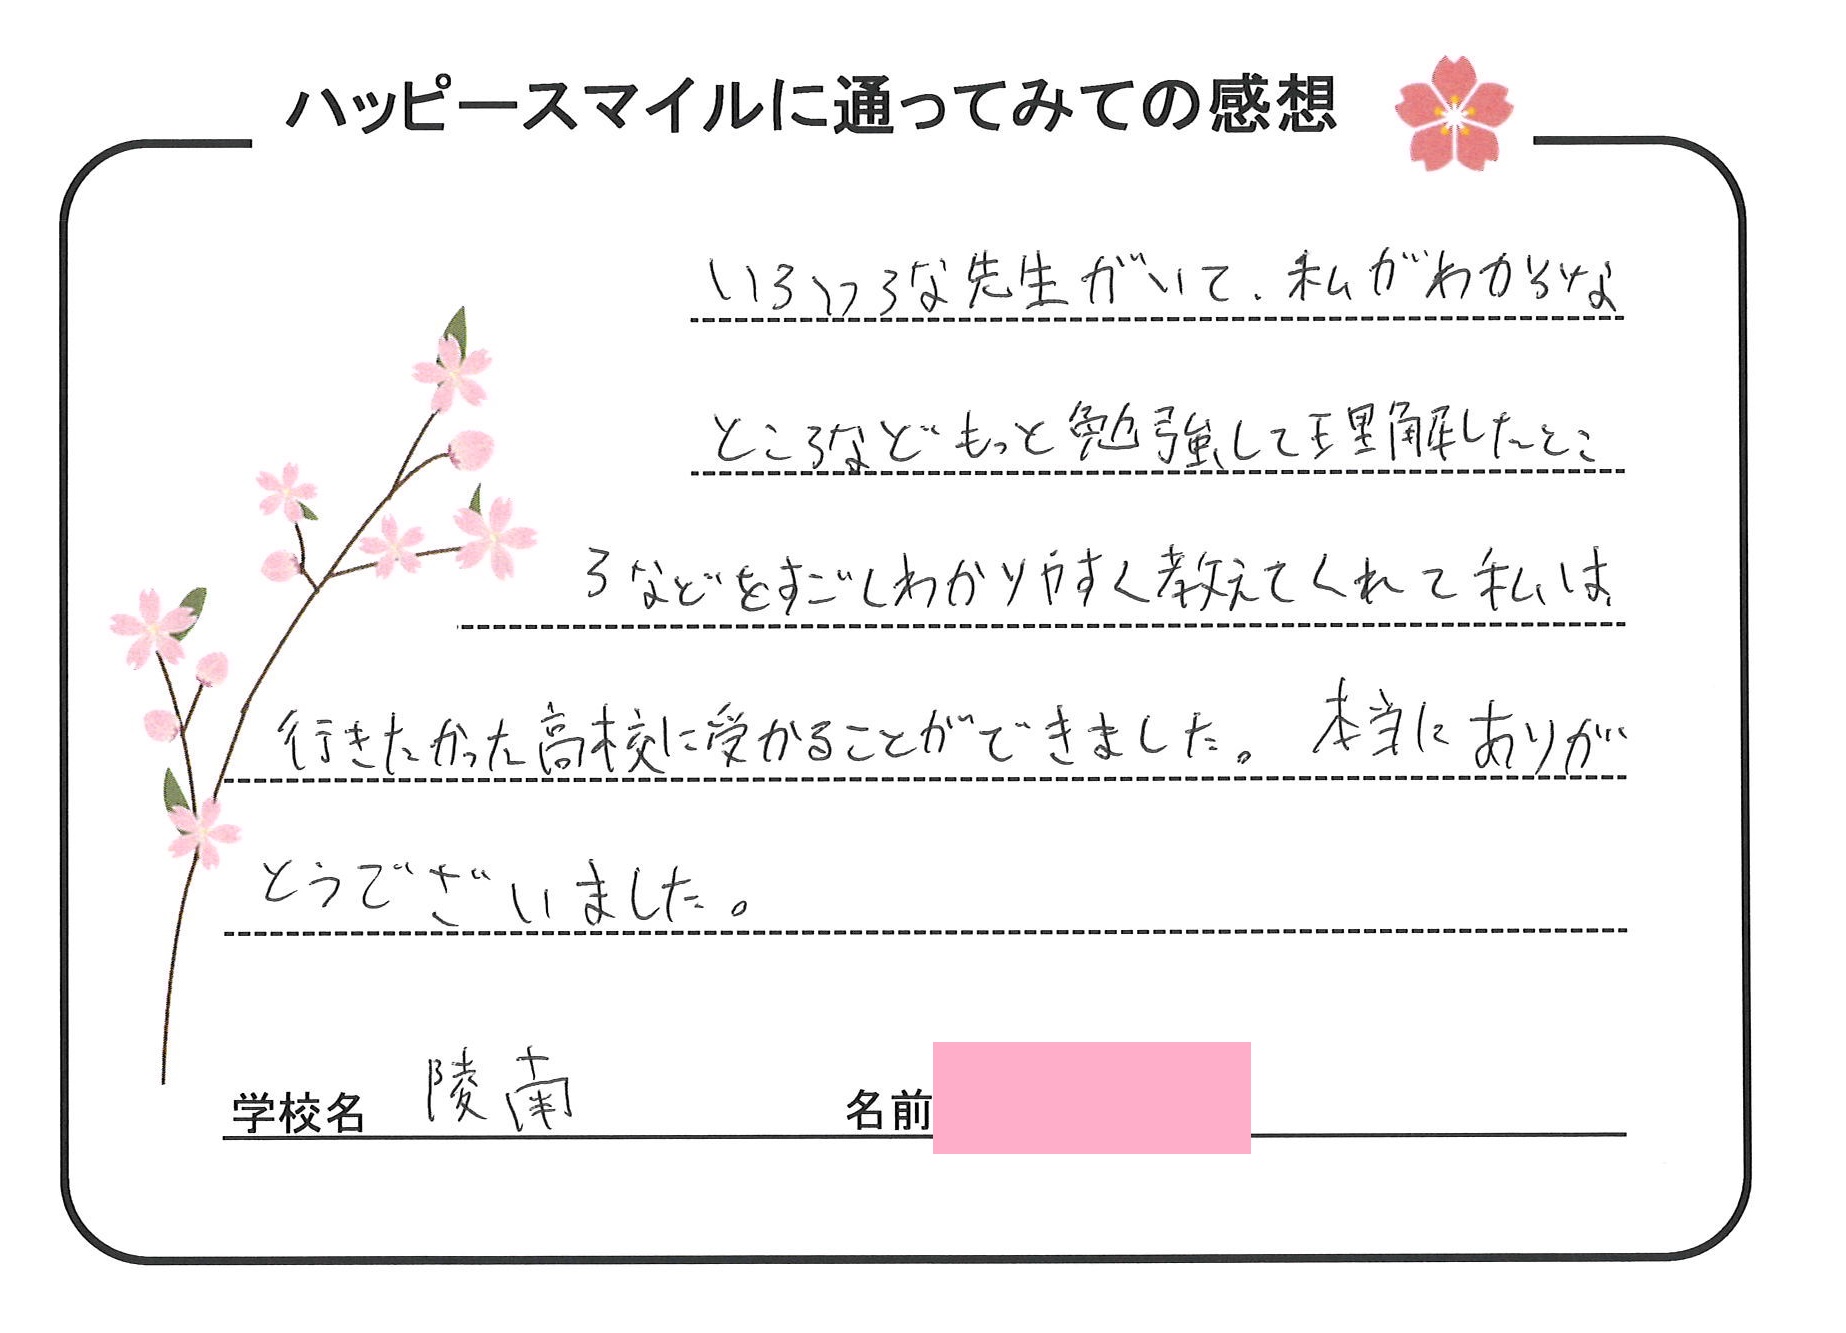 ハッピースマイルに通ってみての感想
いろいろな先生がいて、私がわからないな
ところなどもっと勉強して理解したとこ
ろなどをすごしわかりやすく教えてくれて私は
行きたかった高校に受かることができました。本当にありが
とうでざいました。
学校名 陵南 名前